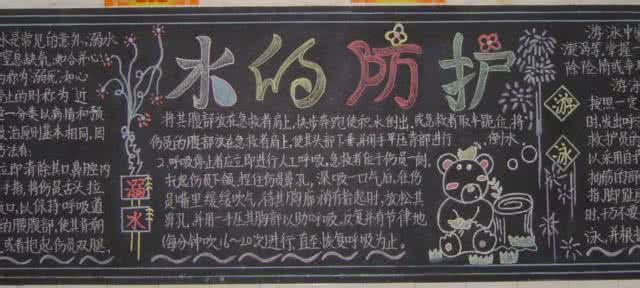 水的防护
水是常见的意外,溺水
窒息缺氧,如合并心
的称为溺死,如心
停止的则称为近
这一分类以病情和预
救治原则基本相同,因
立即清除其口鼻腔内
手指,将伤员舌头拉
以保持呼吸道
的腰腹部,使其背朝
或者抱起伤员双腿,
溺水
将其腹部放在急救者肩上,快步奔跑使积水倒出,或急救者取半跪位,将
伤员的腹部放在急救者肩上,使其头部下垂并用手平压背部进行
倒水
2.呼吸停止者应立即进行人工呼吸,急救者位于伤员一侧,
托起伤员下颌,捏住伤员鼻孔,深吸一口气后,往伤
员嘴里缓缓吹气,待其胸廓稍有抬起时,放松其
鼻孔,并用一手压其胸部以助呼气,反复并有节律地
(每分钟吹16~20次)进行,直至恢复呼吸为止。
游泳
游泳中
掌握
险情或
游泳
按照一
时,发出呼
救护员
以采用自
抽筋的部
指,脚趾
时,千万不要
泳,并根